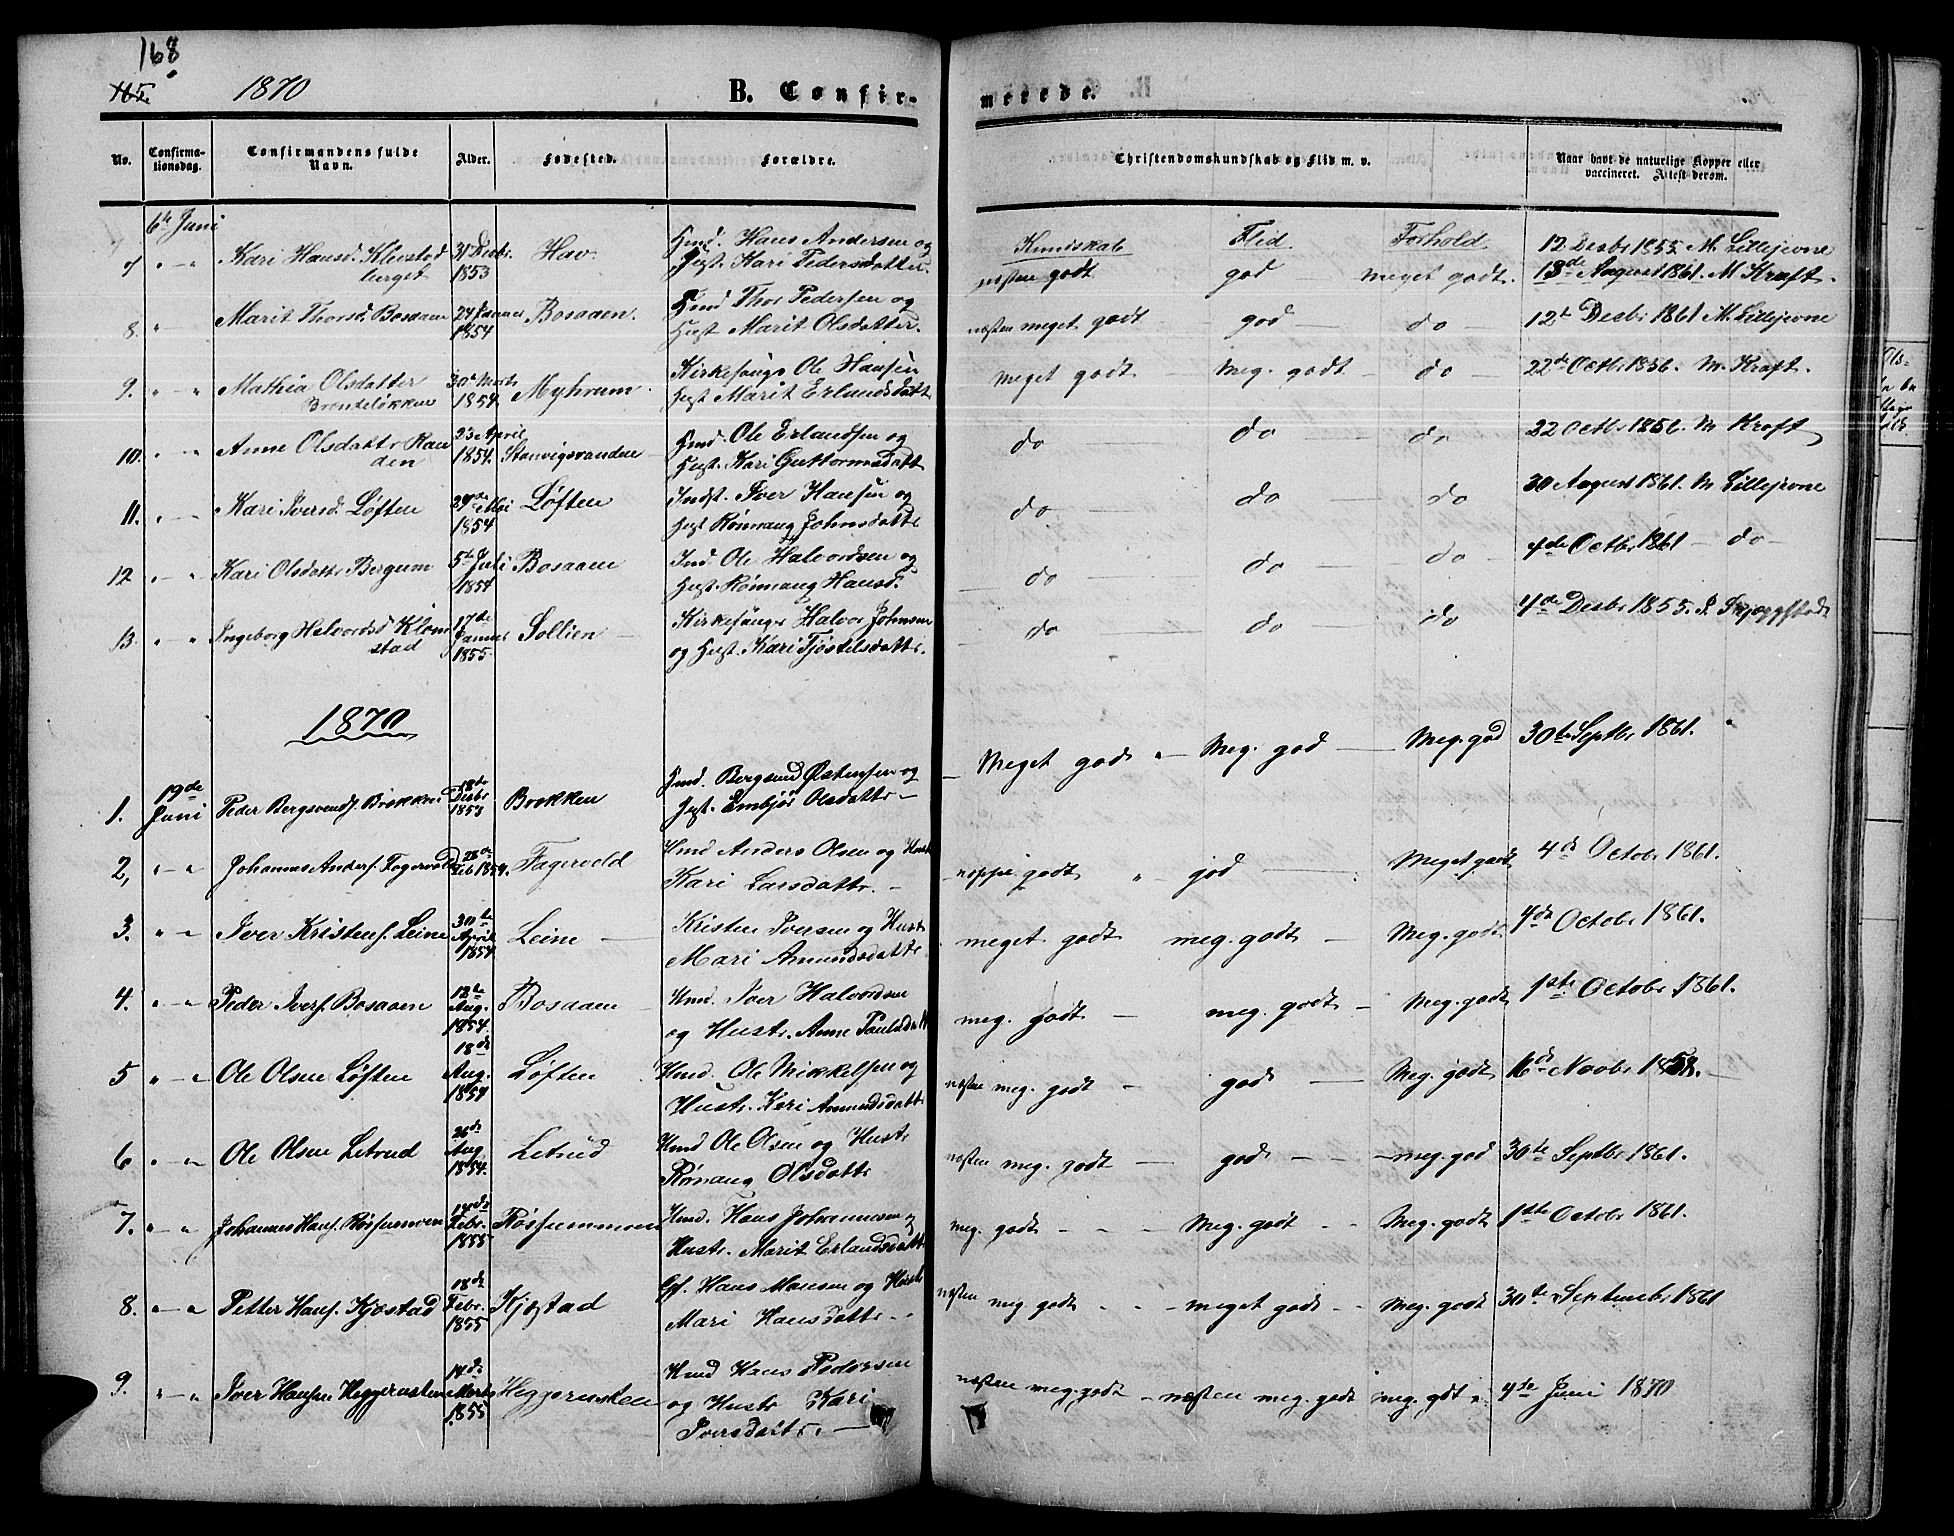 168
115.
1870
B. Confir-
merede.
No.
Confirma-
tionsdag.
Confirmandens fulde
Navn.
Alder.
Fødested.
Forældre.
Christendomskundskab og Flid m. v.
Naar havt de naturlige Kopper eller
vaccineret. Attest derom.
6te Juni
Kundskab Flid. Forhold.
12 Desbr 1855 M. Lillejevne
7 " — " Kari Hansd. Klevstad
berget
31 Desbr.
1853
Hav.
Hmd. Hans Andersen og
Hust. Kari Pedersdatter.
næsten godt god meget godt. 13de August 1861. M Kraft.
8. " — Marit Thorsd. Bosaaen
24 Januar
1854
Bosaaen.
Hmd Thor Pedersen og
Hust Marit Olsdatter.
næsten meget godt — god — do — 12te Desbr 1861 M. Lillejevne
9. " — " Mathia Olsdatter
Brendeløkken
30te Marts
1854.
Myhrum.
Kirkesangr Ole Hansen
Hust Marit Erlandsdatt
meget godt — meg. godt — do — 22de Octbr 1856. M. Kraft.
10. " — " Anne Olsdattr Ran
den
23de April
1854.
Stanvigsranden
Hmd. Ole Erlandsen og
Hust. Kari Guttormsdatt
do — do — do 22 Octbr 1856. M Kraft
11. " — " Kari Iversd. Løften
24de Mai
1854
Løften
Indst. Iver Hansen og
Hust Rønnaug Johnsdattr
do. do — do 30 August 1861. M Lillejevne
12 " — " Kari Olsdattr Bergum
5te Juli
1854
Bosaaen
Ind. Ole Halvordsen og
Hust. Rønnaug Hansd.
do — do — do — 4de Octbr 1861 — do —
13. " — " Ingeborg Halvordsd Klom
stad
17de
Januar
1855.
Sollien —
Kirkesanger Halvor Johnsen
og Hust. Kari Tjøstelsdattr.
do — do do 4de Desbr 1855. P. Skjæggstad
1870
1. 19de
Juni
Peder Bergsvends. Brækken
18de
Desbr
1853
Brækken
Hmd. Bergsvend Østensen og
Hust. Embjør Olsdattr —
Meget god " — Meg. god — Meg. god 30te Septbr 1861. "
2, " — " Johannes Anders. Fagervold
28de
Feb 1854.
Fagervold
Hmd Anders Olsen og Hust
Kari Larsdattr. —
noppe godt " — god — Meget godt 4de Octobr 1861.
3. " — " Iver Kristens. Leine
30te
April
1854
Leine —
Kristen Iversen og Hust
Mari Amundsdattr
meget godt meg. godt — Meg. godt 4de Octobr 1861.
4. " — " Peder Ivers. Bosaaen
12te
Aug.
1854.
Bosaaen
Hmd. Iver Halvordsen
og Hustr. Anne Paulsdatt
meg. godt — meg. godt — Meg. godt 1ste Octobr 1861.
5 " — " Ole Olsen Løften
18de
Aug.
1854
Løften
Hmd. Ole Mikkelsen og
Hustr. Kari Amundsdattr
næsten meg. godt — god — Meg. godt 16de Novbr 1858. —
6 " — " Ole Olsen Letrud
26de
Aug
1854.
Letrud
Hmd Ole Olsen og Hustr
Rønnaug Olsdattr
næsten meg. godt — god — — meg. god 30te Septbr 1861.
7. " — " Johannes Hans. Røssummoen
14de
Febr.
1855
Røssummoen
Hmd. Hans Johannesen og
Hustr. Marit Erlandsdatt
meg. godt - - - Meg. godt - - Meg. godt 1ste Octobr 1861.
8. " — " Petter Hans. Kjøstad
18de
Febr.
1855
Kjøstad
Gf. Hans Hansen og Hustr
Mari Hansdattr -
næsten meg godt - - - meget godt - - Meg. godt 30te Septembr 1861
9. " — " Iver Hansen Heggerusten
14de
Marts
1855
Heggerusten
Hmd Hans Pedersen
og Hustr Kari
Iversdattr. —
næsten meg. godt — næsten meg. godt meg. gdt " 4de Juni 1870